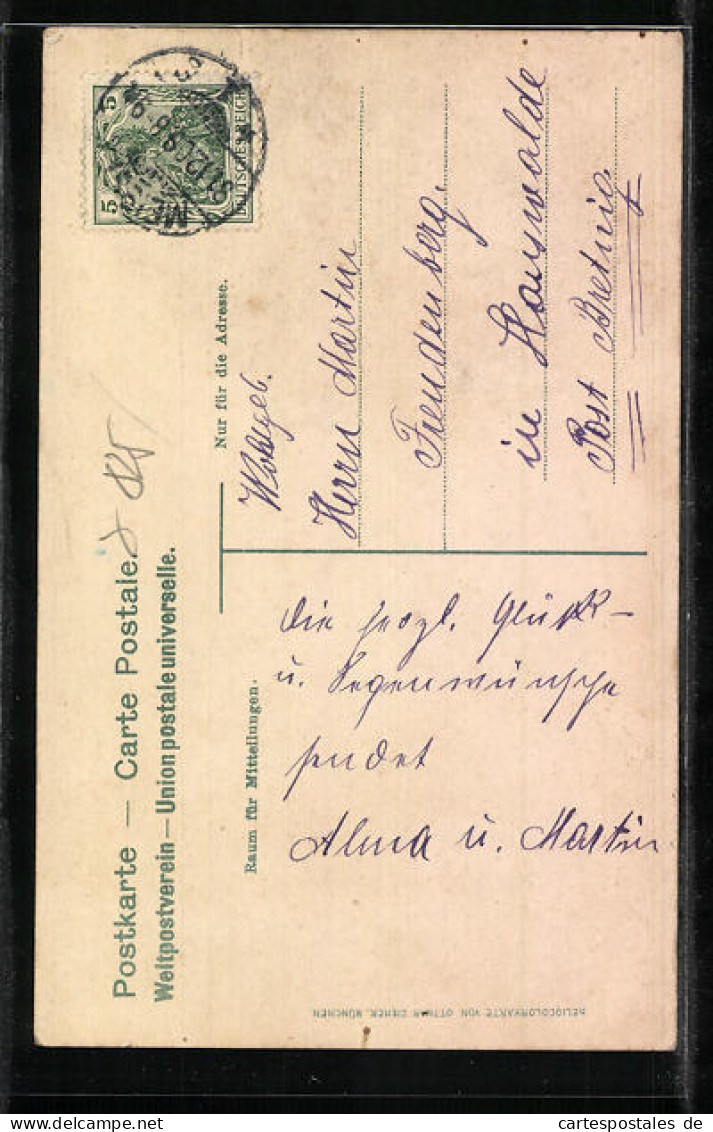 Postkarte — Carte Postale.
Weltpostverein — Union postale universelle.
Nur für die Adresse.
Raum für Mitteilungen.
5 5
DEUTSCHES REICH
Die herzl. Glück-
u. Segenwünsche
sendet
Alma u. Martin
Wohlgeb.
Herrn Martin
Freudenberg.
in Hauswalde
Post Bretnig
HELIOCOLORKARTE VON OTTMAR ZIEHER, MÜNCHEN
www.cartespostales.eu
cartespostales de